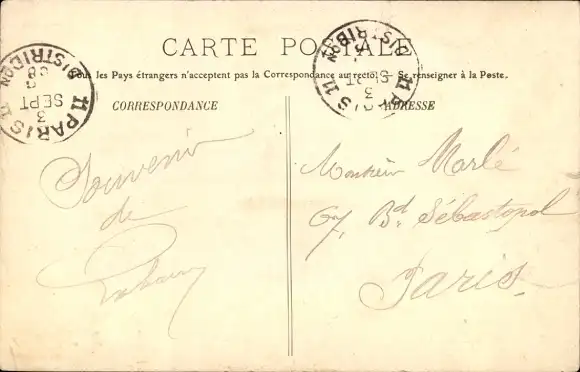 CARTE POSTALE
Tous les Pays étrangers n'acceptent pas la Correspondance au recto. — Se renseigner à la Poste.
CORRESPONDANCE
ADRESSE
PARIS 11
DISTRIBON
3
SEPT
08
PARIS 11
DISTRIBON
3
Souvenir
de
Monsieur Marlé
67, Bd Sébastopol
Paris